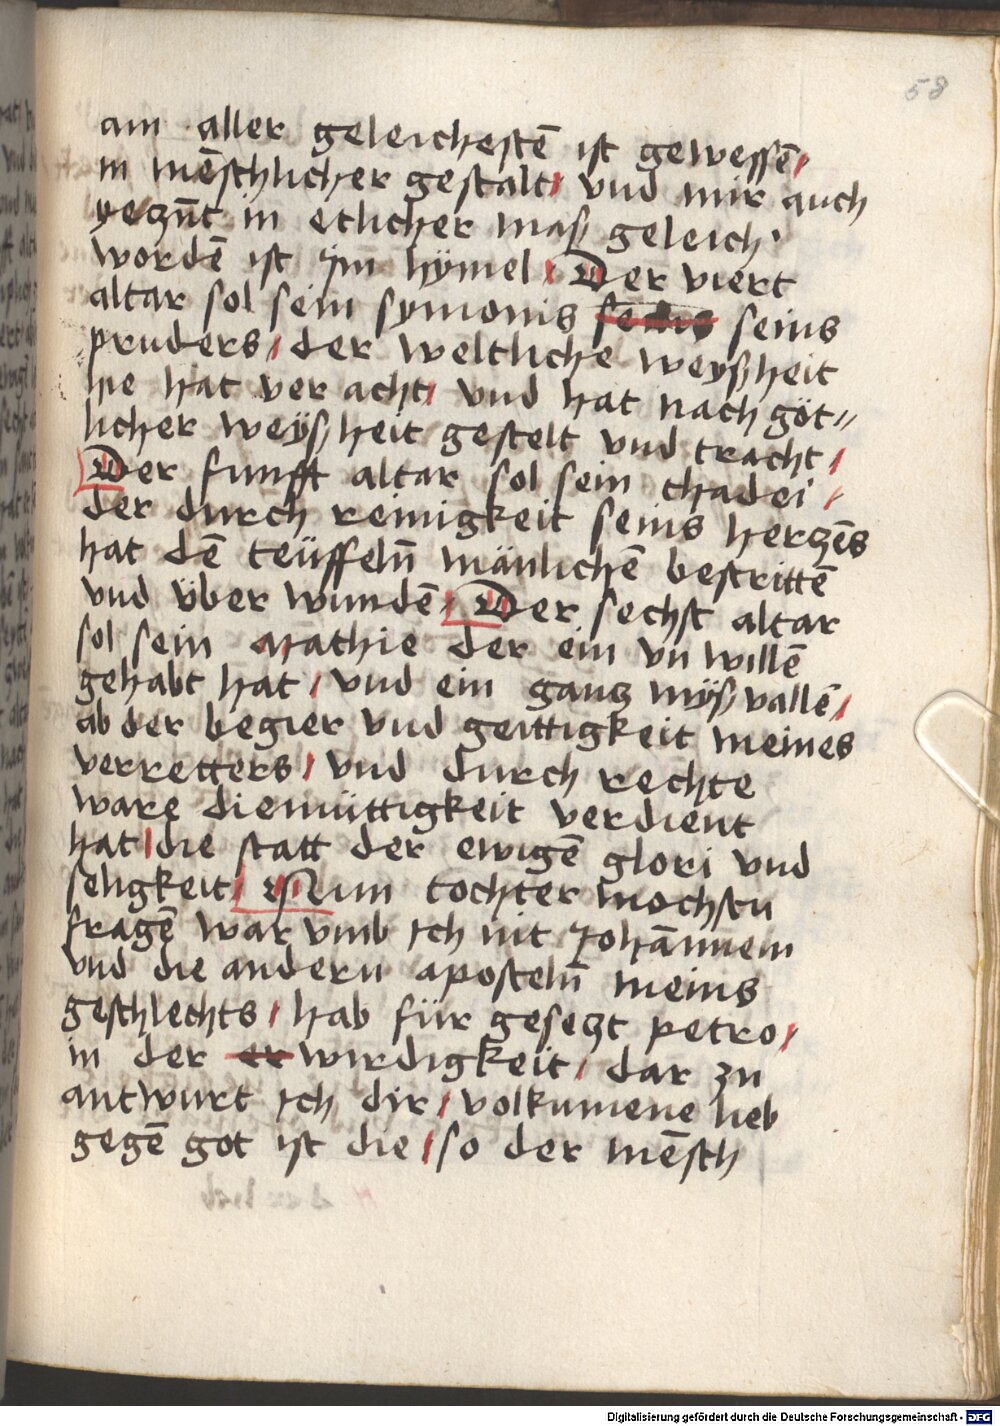 58
am aller geleichestē ist gewessē /
in mēschlicher gestalt / vnd mir auch
yeczn̄t in etlicher maß geleich ·
wordē ist Jm hymel / Der viert
altar sol sein symonis seins
pruders / der weltliche weyßheit
hie hat ver acht / vnd hat nach göt〃
licher weyßheit gestelt vnd tracht /
Der funfft altar sol sein thadei /
der durch reinigkeit seins herczēs
hat dē teüffeln̄ mänlichē bestrittē
vnd über wundē / Der sechst altar
sol sein mathie der ein vn willē
gehabt hat / vnd ein gantz myßvallē /
ab der begier vnd geittigkeit meines
verretters / vnd durch rechte
ware diemüttigkeit verdient
hat / die statt der ewigē glori vnd
seligkeit / Mein tochter mochstu
fragē war vmb ich nit Johānnem
vnd die andern aposteln̄ meins
geschlechts / hab für gesetzt petro /
in der er wirdigkeit / dar zu
antwurt ich dir / volkumene lieb
gegē got ist die / so der mēsch
Digitalisierung gefördert durch die Deutsche Forschungsgemeinschaft - DFG